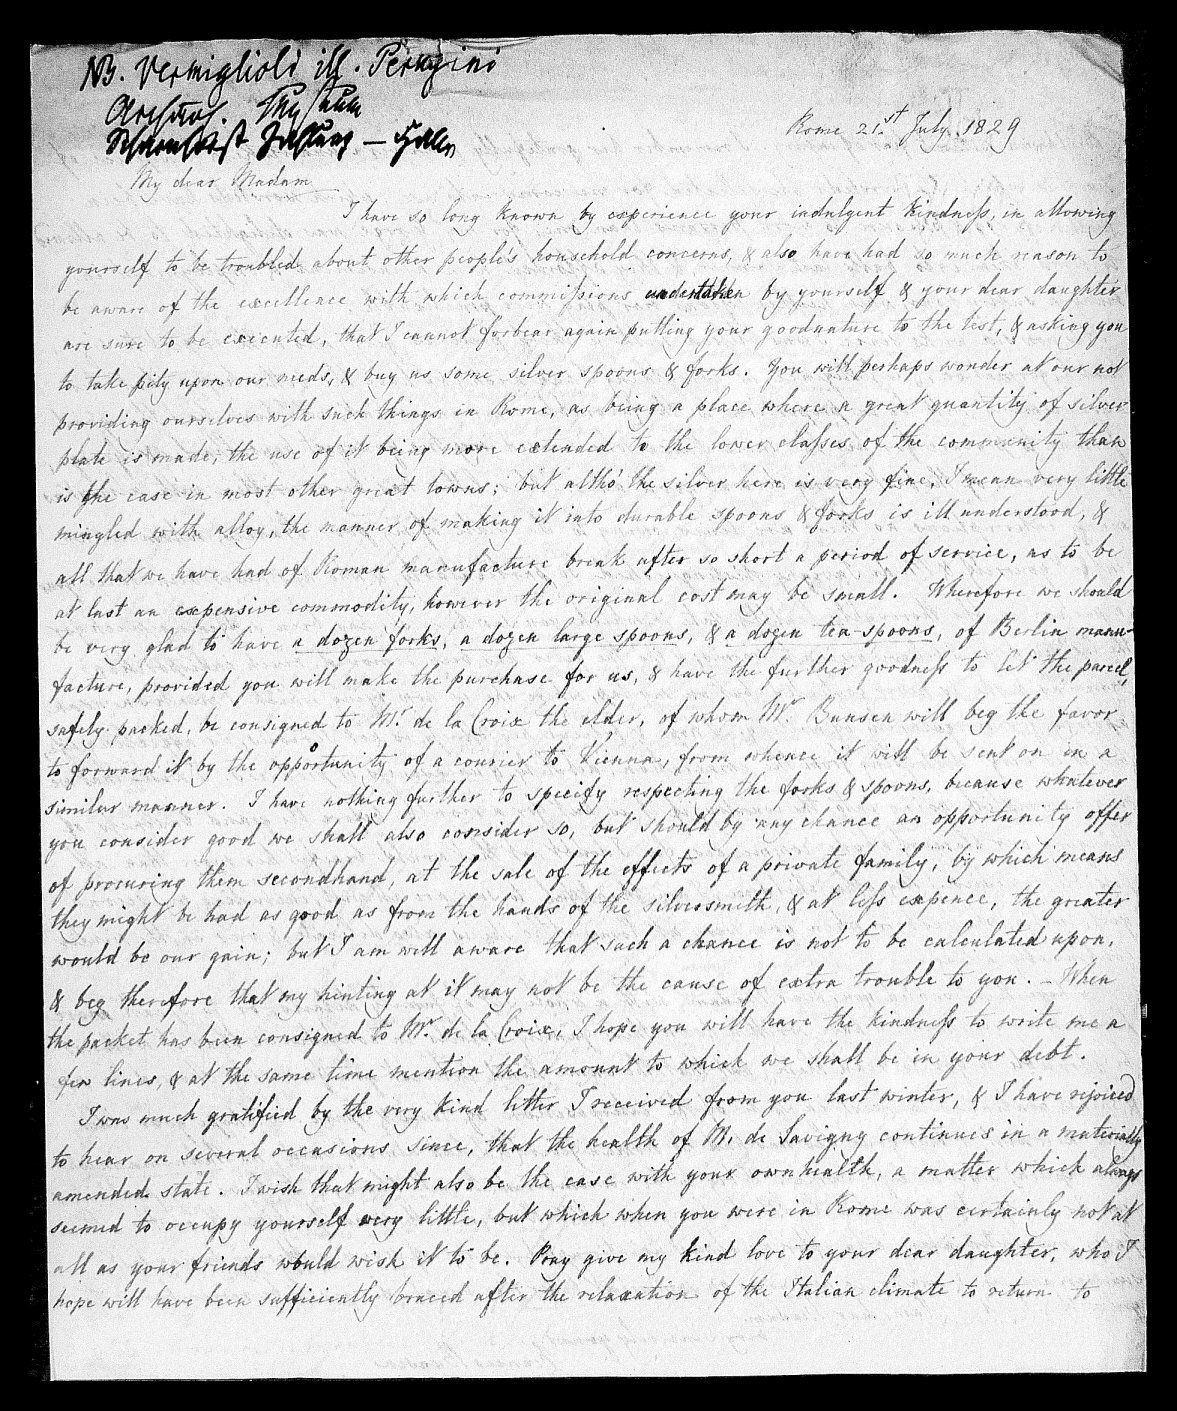 NB. Vermiglioli ill. Perugini
Rome 21st July 1829
My dear Madam
I have so long known by experience your indulgent kindness, in allowing
yourself to be troubled about other people's household concerns, & also have had so much reason to
be aware of the excellence with which commissions undertaken by yourself & your dear daughter
are sure to be executed, that I cannot forbear again putting your goodnature to the test, & asking you
to take pity upon our needs, & buy us some silver spoons & forks. You will perhaps wonder at our not
providing ourselves with such things in Rome, as being a place where a great quantity of silver
plate is made, the use of it being more extended to the lower classes of the community than
is the case in most other great towns; but altho' the silver here is very fine, I mean very little
mingled with alloy, the manner of making it into durable spoons & forks is ill understood, &
all that we have had of Roman manufacture break after so short a period of service, as to be
at last an expensive commodity, however the original cost may be small. Wherefore we should
be very glad to have a dozen forks, a dozen large spoons, & a dozen tea-spoons, of Berlin manu-
facture, provided you will make the purchase for us, & have the further goodness to let the parcel,
safely packed, be consigned to Mr. de la Croix the elder, of whom Mr. Bunsen will beg the favor
to forward it by the opportunity of a courier to Vienna, from whence it will be sent on in a
similar manner. I have nothing further to specify respecting the forks & spoons, because whatever
you consider good we shall also consider so, but should by any chance an opportunity offer
of procuring them secondhand, at the sale of the effects of a private family, by which means
they might be had as good as from the hands of the silversmith, & at less expence, the greater
would be our gain; but I am well aware that such a chance is not to be calculated upon,
& beg therefore that my hinting at it may not be the cause of extra trouble to you. – When
the packet has been consigned to Mr. de la Croix, I hope you will have the kindness to write me a
few lines, & at the same time mention the amount to which we shall be in your debt.
I was much gratified by the very kind letter I received from you last winter, & I have rejoiced
to hear on several occasions since, that the health of M. de Savigny continues in a materially
amended state. I wish that might also be the case with your own health, a matter which always
seemed to occupy yourself very little, but which when you were in Rome was certainly not at
all as your friends would wish it to be. Pray give my kind love to your dear daughter, who I
hope will have been sufficiently braced after the relaxation of the Italian climate to return to